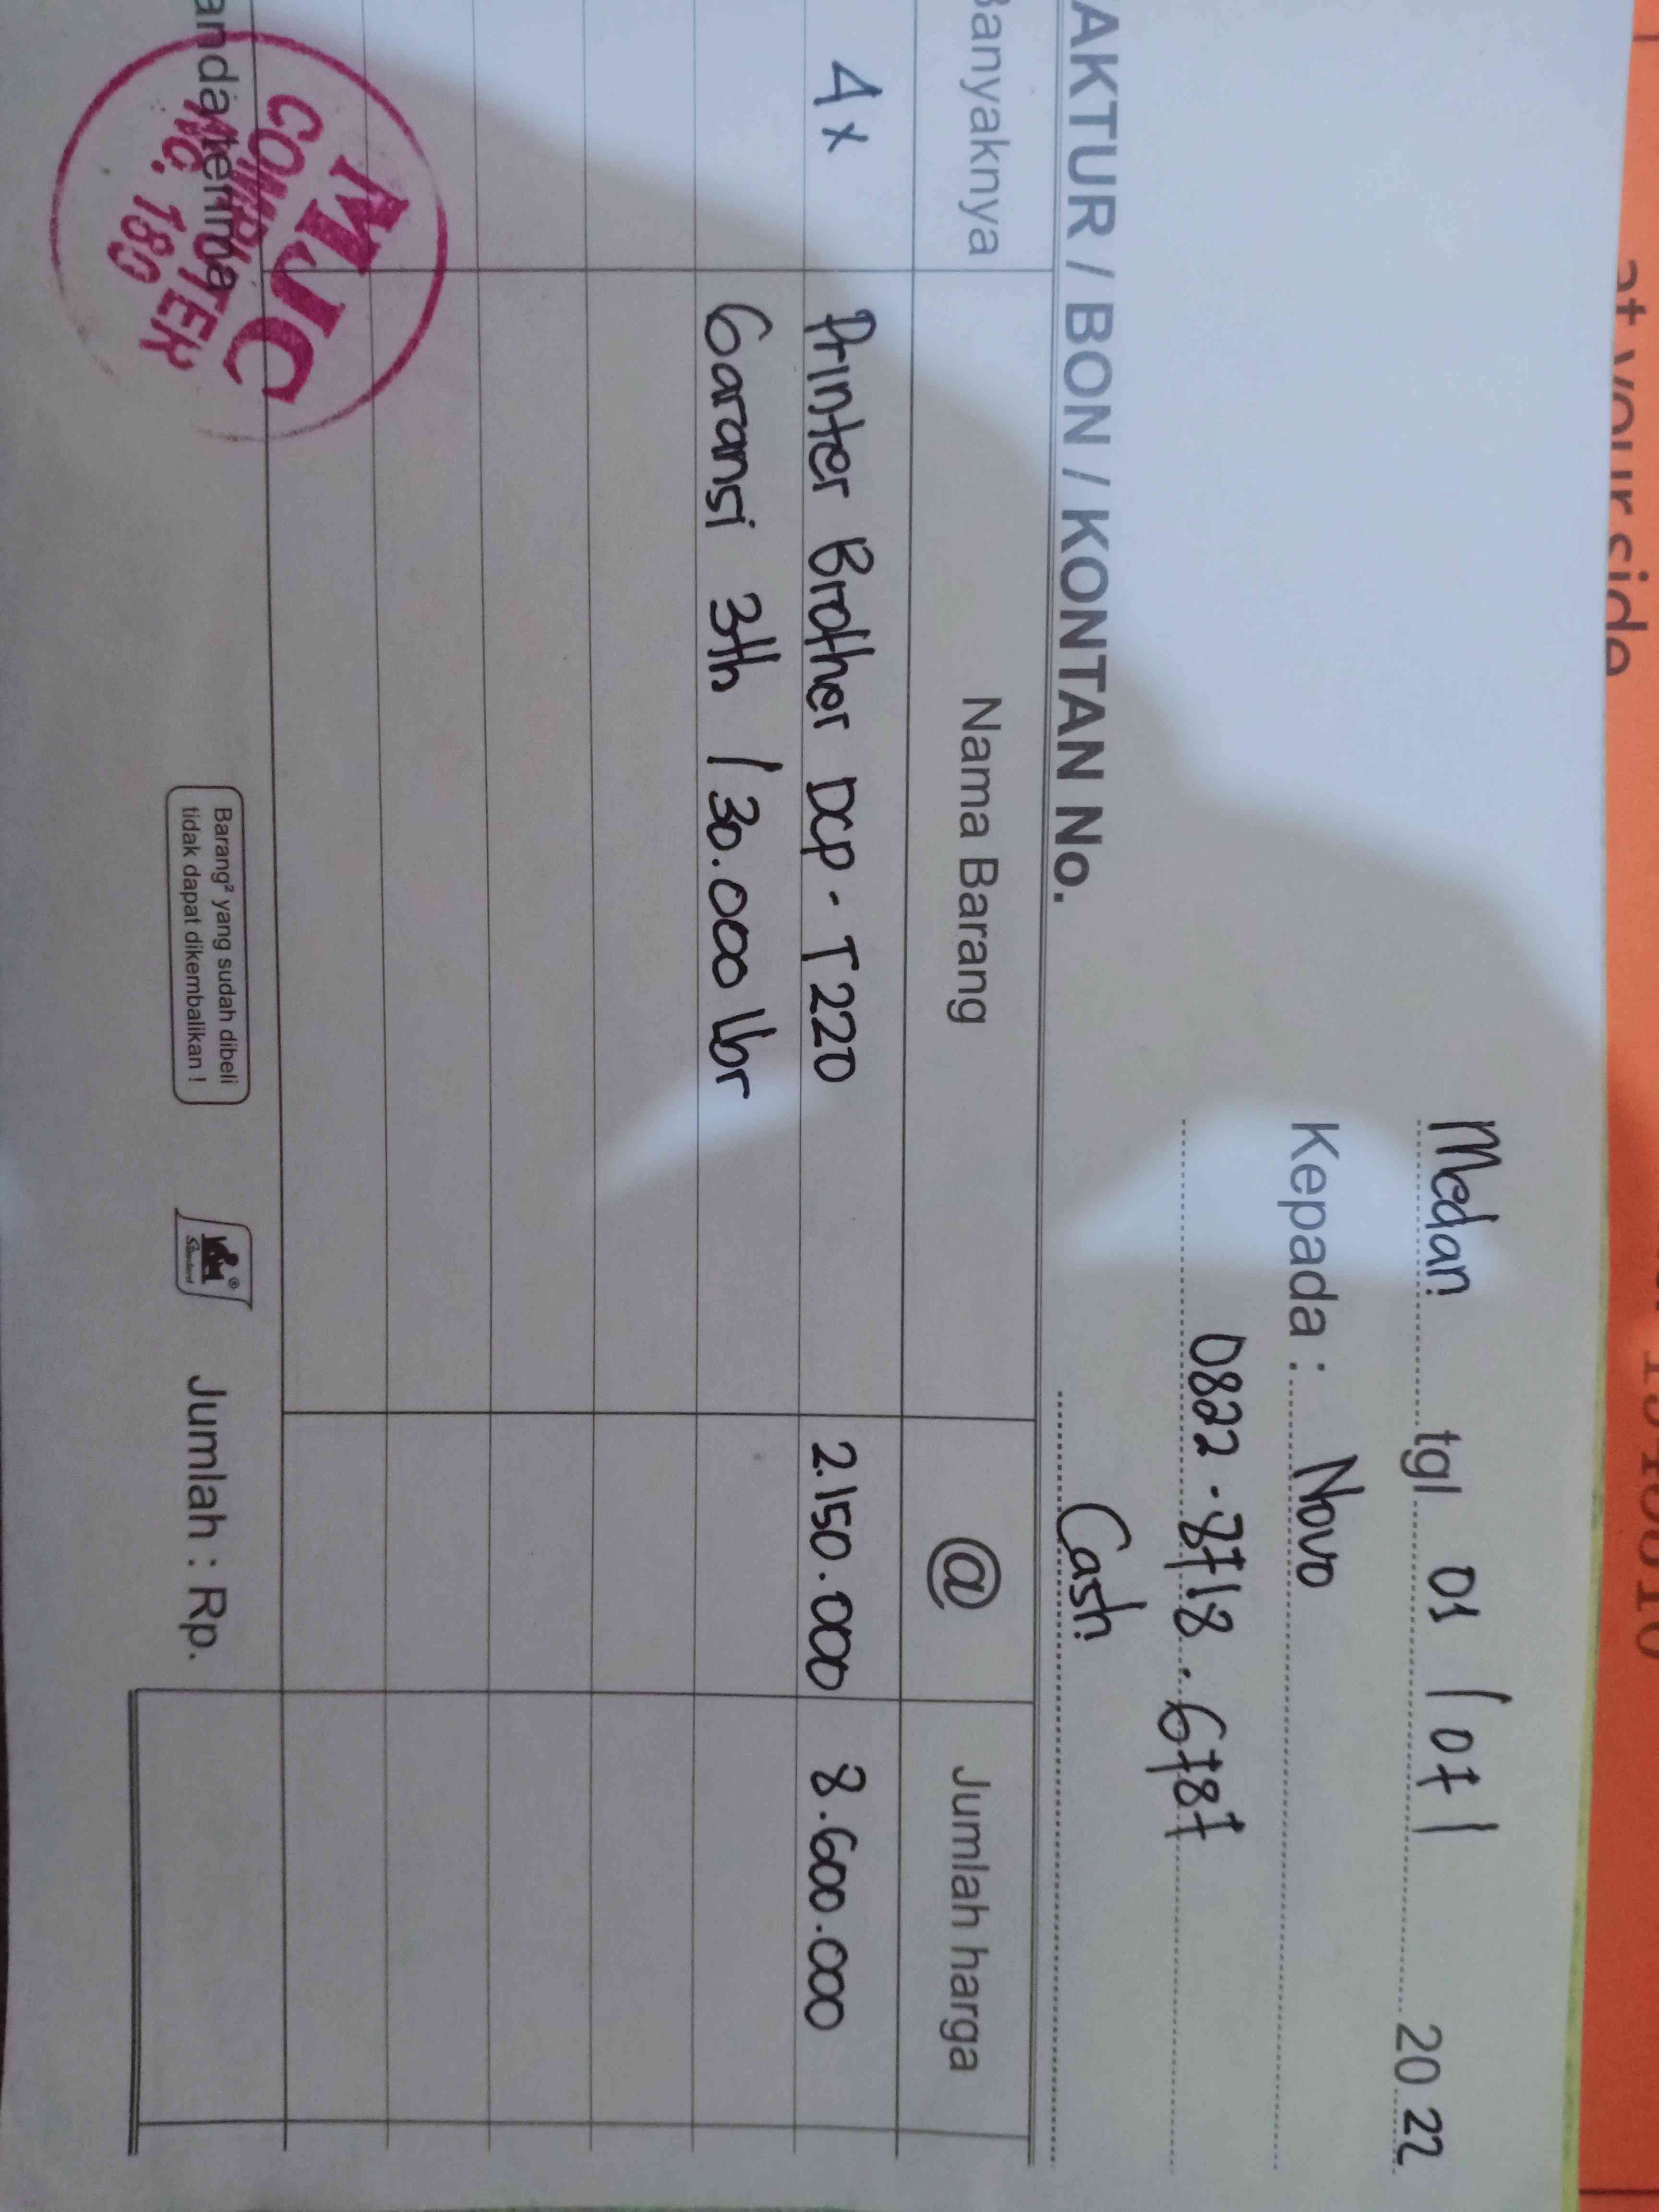 at your side
Medan tgl 01 / 07 / 20 22
Kepada : Novo
0822 - 8718 - 6787
AKTUR / BON / KONTAN No. Cash
Banyaknya Nama Barang @ Jumlah harga
4 x Printer Brother DCP - T220 2.150.000 8.600.000
Garansi 3th / 30.000 lbr
anda terima
MJC
COMPUTER
NO. 180
Barang² yang sudah dibeli
tidak dapat dikembalikan !
Standard
Jumlah : Rp.